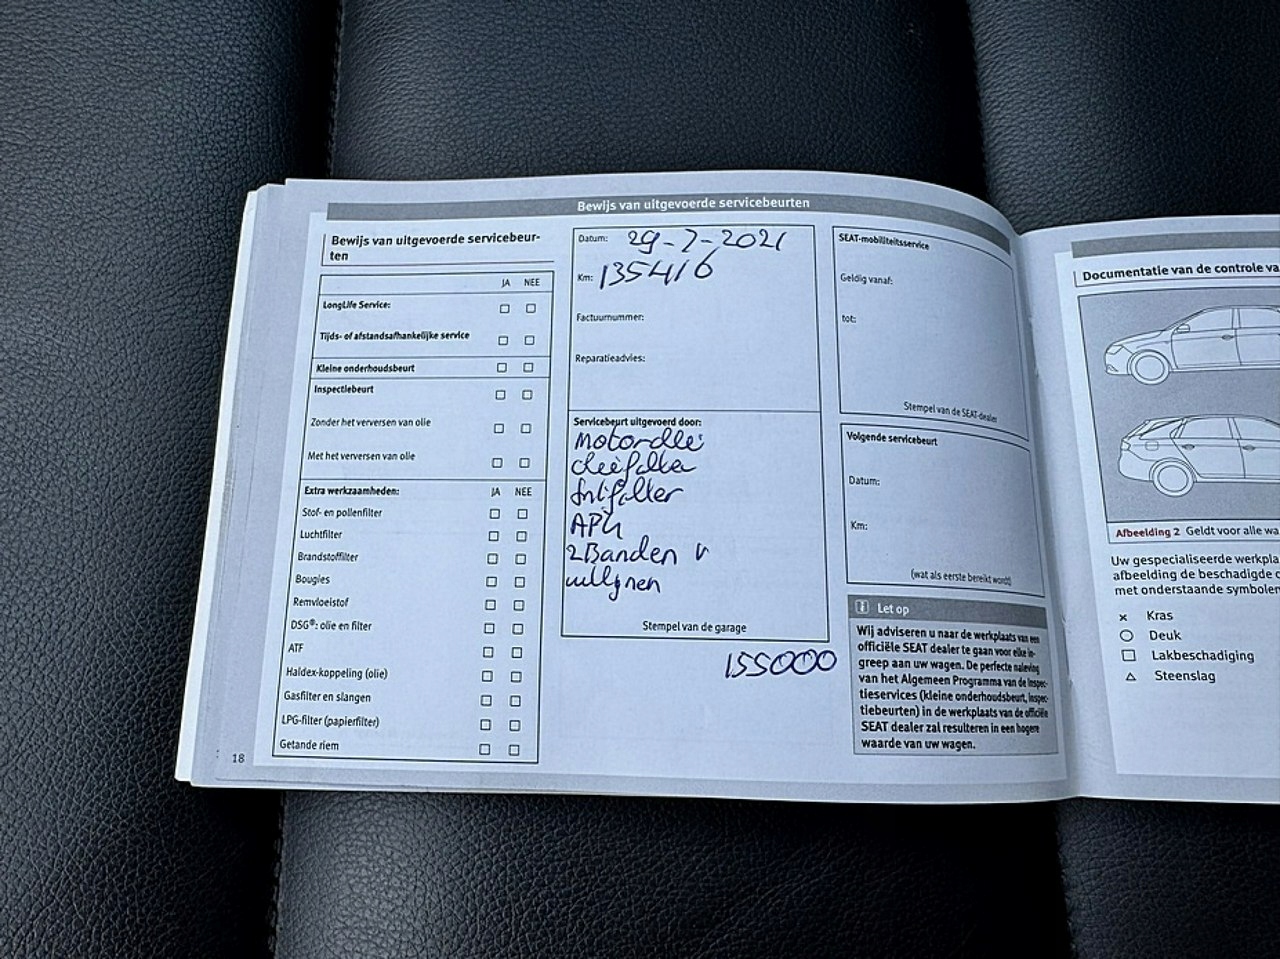 Bewijs van uitgevoerde servicebeurten
Bewijs van uitgevoerde servicebeur-
ten
JA NEE
LongLife Service:
Tijds- of afstandsafhankelijke service
Kleine onderhoudsbeurt
Inspectiebeurt
Zonder het verversen van olie
Met het verversen van olie
Extra werkzaamheden: JA NEE
Stof- en pollenfilter
Luchtfilter
Brandstoffilter
Bougies
Remvloeistof
DSG®: olie en filter
ATF
Haldex-koppeling (olie)
Gasfilter en slangen
LPG-filter (papierfilter)
Getande riem
18
Datum: 29-7-2021
Km: 135416
Factuurnummer:
Reparatieadvies:
Servicebeurt uitgevoerd door:
APK
2 Banden v
Stempel van de garage
155000
SEAT-mobiliteitsservice
Geldig vanaf:
tot:
Stempel van de SEAT-dealer
Volgende servicebeurt
Datum:
Km:
(wat als eerste bereikt wordt)
Let op
Wij adviseren u naar de werkplaats van een
officiële SEAT dealer te gaan voor elke in-
greep aan uw wagen. De perfecte naleving
van het Algemeen Programma van de Inspec-
tieservices (kleine onderhoudsbeurt, inspec-
tiebeurten) in de werkplaats van de officiële
SEAT dealer zal resulteren in een hogere
waarde van uw wagen.
Documentatie van de controle va
Afbeelding 2 Geldt voor alle wa
Uw gespecialiseerde werkpla
afbeelding de beschadigde
met onderstaande symbolen
Kras
Deuk
Lakbeschadiging
Steenslag